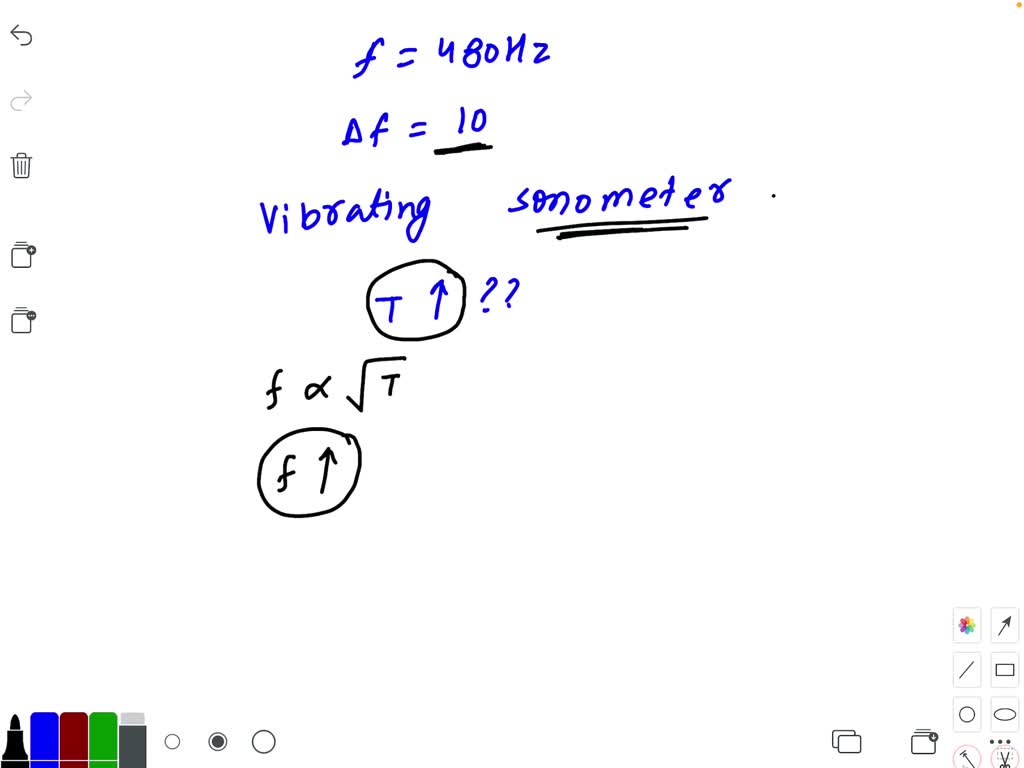 f = 480Hz
Δf = 10
Vibrating sonometer .
T ↑ ??
f ∝ √T
f ↑